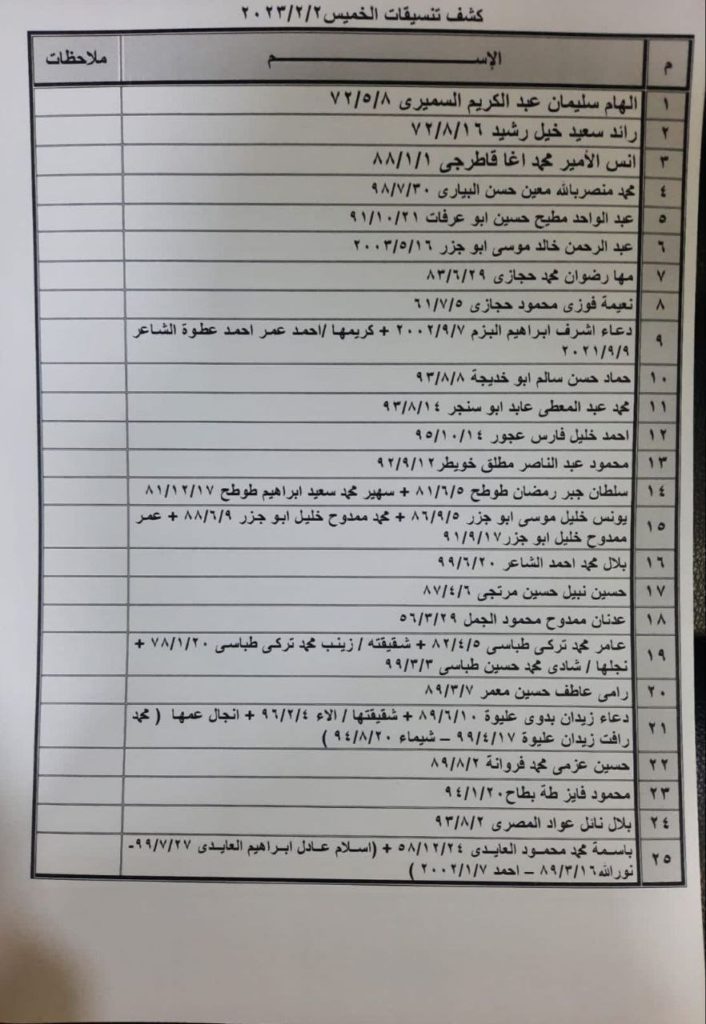 كشف تنسيقات الخميس ٢٠٢٣/٢/٢
م الإســـــــــم ملاحظات
١ الهام سليمان عبد الكريم السميرى ٧٢/٥/٨
٢ رائد سعيد خيل رشيد ٧٢/٨/١٦
٣ انس الأمير محمد اغا قاطرجى ٨٨/١/١
٤ محمد منصربالله معين حسن البيارى ٩٨/٧/٣٠
٥ عبد الواحد مطيح حسين ابو عرفات ٩١/١٠/٢١
٦ عبد الرحمن خالد موسى ابو جزر ٢٠٠٣/٥/١٦
٧ مها رضوان محمد حجازى ٨٣/٦/٢٩
٨ نعيمة فوزى محمود حجازى ٦١/٧/٥
٩ دعاء اشرف ابراهيم البزم ٢٠٠٢/٩/٧ + كريمها /احمد عمر احمد عطوة الشاعر
٢٠٢١/٩/٩
١٠ حماد حسن سالم ابو خديجة ٩٣/٨/٨
١١ محمد عبد المعطى عابد ابو سنجر ٩٣/٨/١٤
١٢ احمد خليل فارس عجور ٩٥/١٠/١٤
١٣ محمود عبد الناصر مطلق خويطر٩٢/٩/١٢
١٤ سلطان جبر رمضان طوطح ٨١/٦/٥ + سهير محمد سعيد ابراهيم طوطح ٨١/١٢/١٧
١٥ يونس خليل موسى ابو جزر ٨٦/٩/٥ + محمد ممدوح خليل ابو جزر ٨٨/٦/٩ + عمر
ممدوح خليل ابو جزر٩١/٩/١٧
١٦ بلال محمد احمد الشاعر ٩٩/٦/٢٠
١٧ حسين نبيل حسين مرتجى ٨٧/٤/٦
١٨ عدنان ممدوح محمود الجمل ٥٦/٣/٢٩
١٩ عامر محمد تركى طباسى ٨٢/٤/٥ + شقيقته / زينب محمد تركى طباسى ٧٨/١/٢٠ +
نجلها / شادى محمد حسين طباسى ٩٩/٣/٣
٢٠ رامى عاطف حسين معمر ٨٩/٣/٧
٢١ دعاء زيدان بدوى عليوة ٨٩/٦/١٠ + شقيقتها / الاء ٩٦/٢/٤ + انجال عمها ( محمد
رافت زيدان عليوة ٩٩/٤/١٧ – شيماء ٩٤/٨/٢٠ )
٢٢ حسين عزمى محمد فروانة ٨٩/٨/٢
٢٣ محمود فايز طة بطاح٩٤/١/٢٠
٢٤ بلال نائل عواد المصرى ٩٣/٨/٢
٢٥ باسمة محمد محمود العايدى ٥٨/١٢/٢٤ + (اسلام عادل ابراهيم العايدى ٩٩/٧/٢٧-
نورالله٨٩/٣/١٦ – احمد ٢٠٠٢/١/٧ )